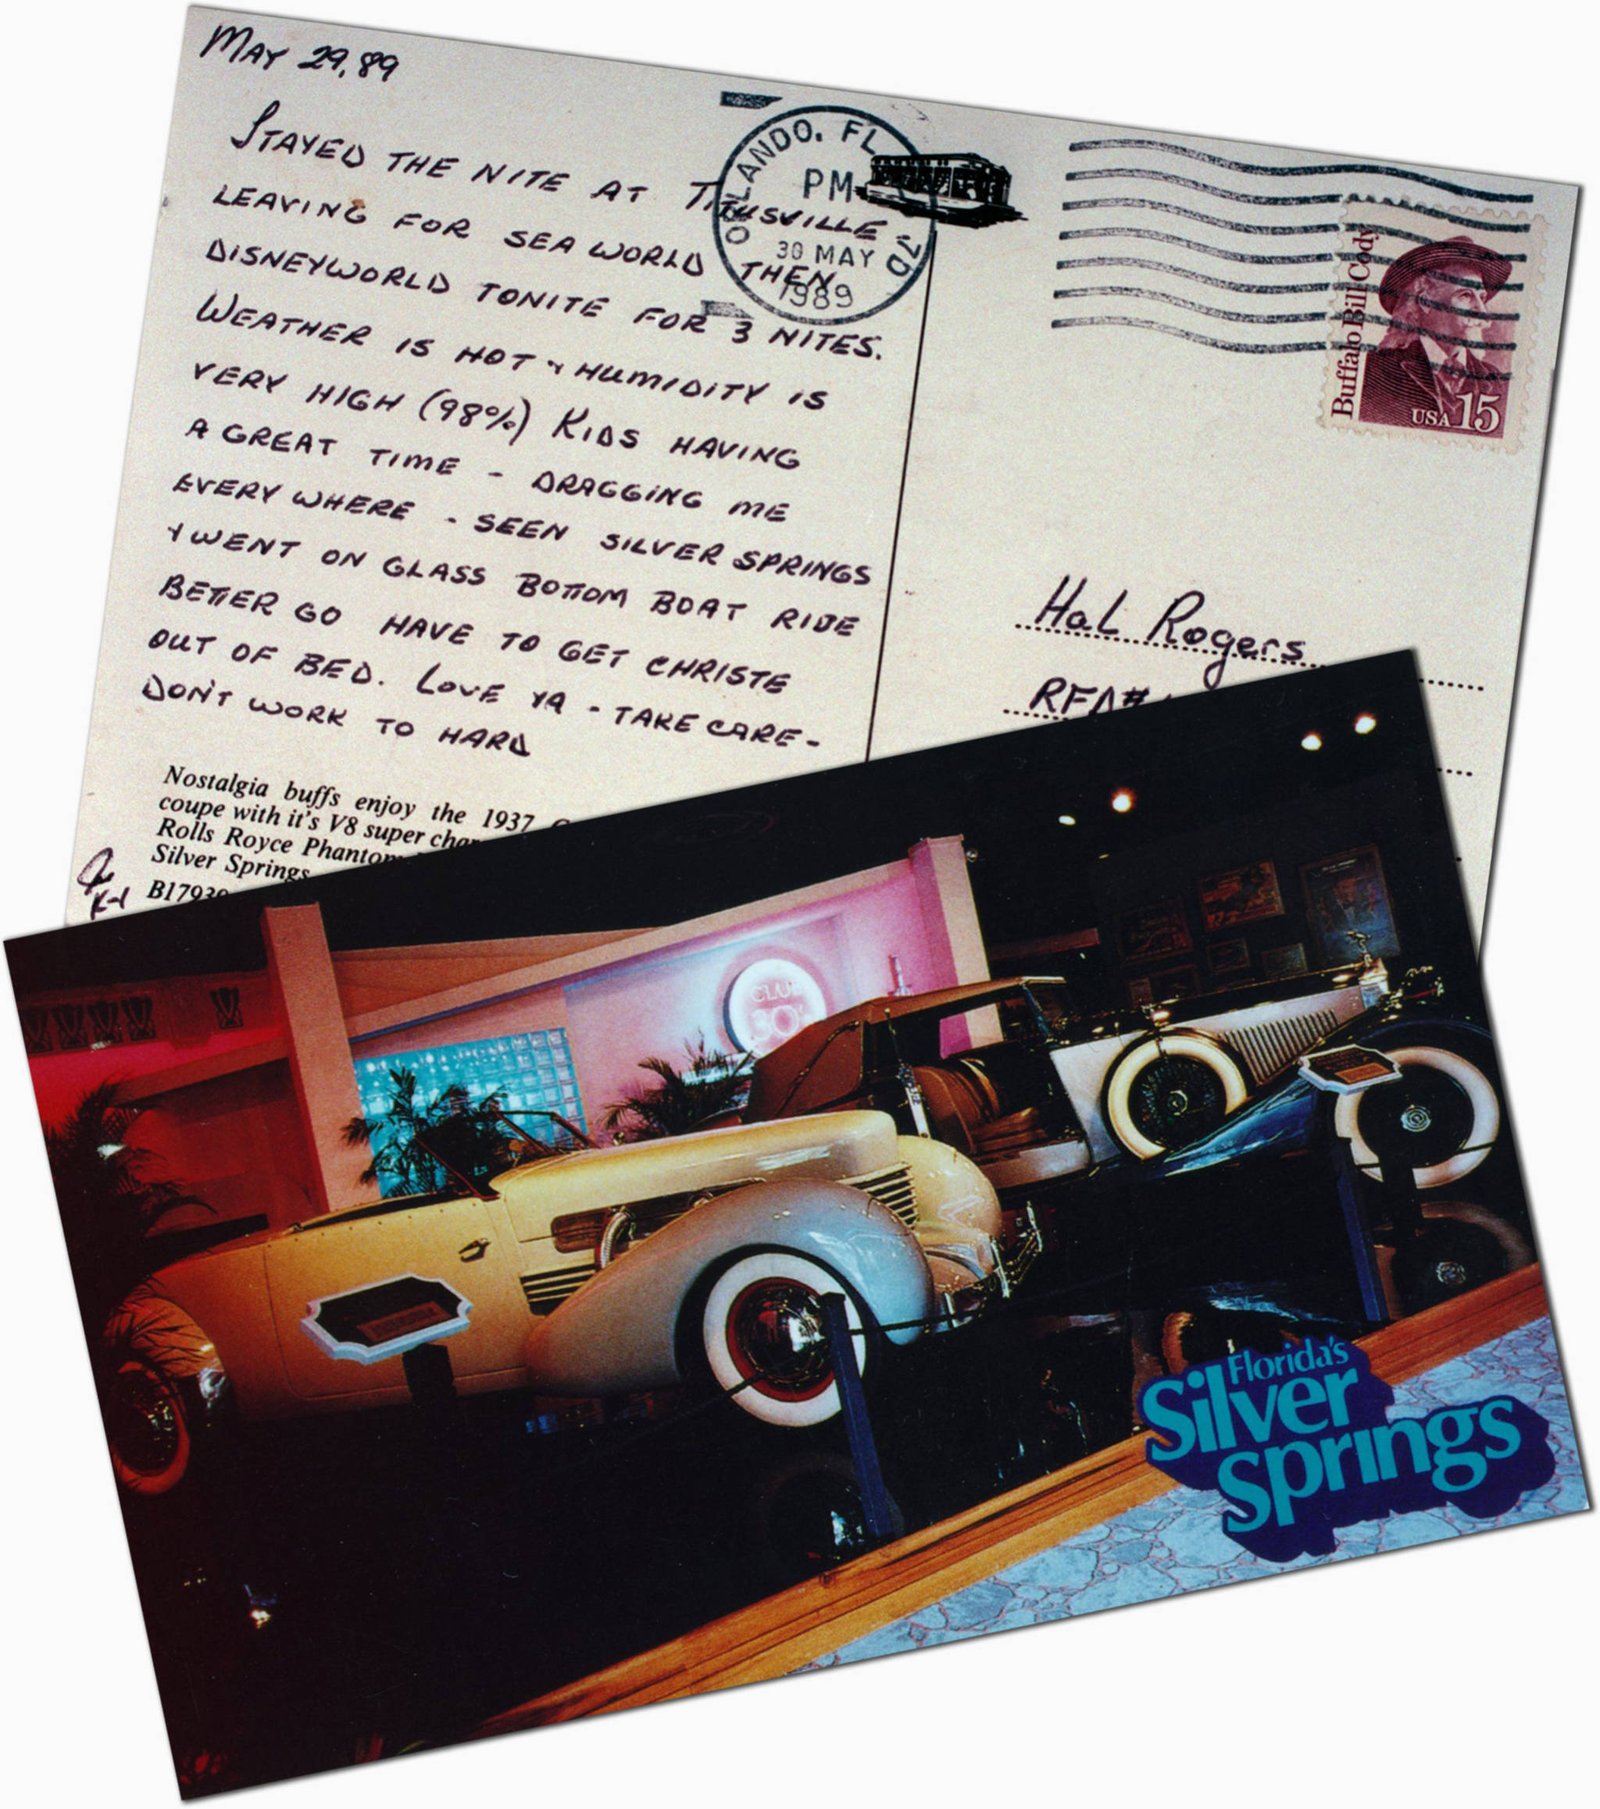 MAY 29, 89
STAYED THE NITE AT TITUSVILLE
LEAVING FOR SEA WORLD THEN
DISNEYWORLD TONITE FOR 3 NITES.
WEATHER IS HOT & HUMIDITY IS
VERY HIGH (98%) KIDS HAVING
A GREAT TIME - DRAGGING ME
EVERYWHERE - SEEN SILVER SPRINGS
& WENT ON GLASS BOTTOM BOAT RIDE
BETTER GO HAVE TO GET CHRISTE
OUT OF BED. LOVE YA - TAKE CARE -
DON'T WORK TO HARD
Nostalgia buffs enjoy the 1937
coupe with it's V8 super
Rolls Royce Phantom
Silver Springs
ORLANDO, FL
PM
30 MAY
1989
Buffalo Bill Cody
USA 15
Hal Rogers
RFD#
CLUB
30's
Florida's
Silver
Springs